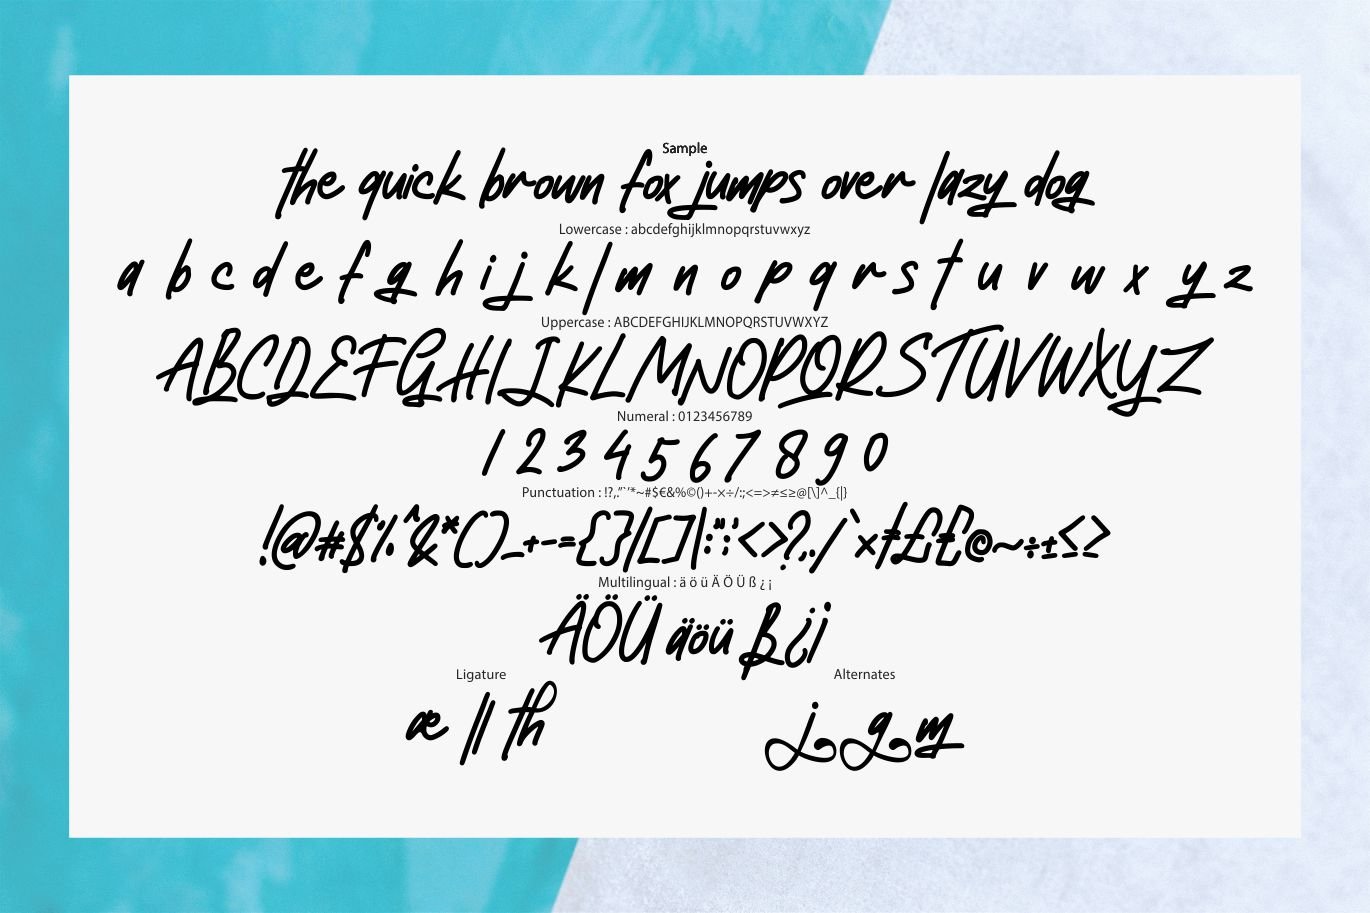 Sample
the quick brown fox jumps over lazy dog
Lowercase : abcdefghijklmnopqrstuvwxyz
a b c d e f g h i j k l m n o p q r s t u v w x y z
Uppercase : ABCDEFGHIJKLMNOPQRSTUVWXYZ
ABCDEFGHIJKLMNOPQRSTUVWXYZ
Numeral : 0123456789
1 2 3 4 5 6 7 8 9 0
Punctuation : !?,."`'*~#$€&%©()+-×÷/:;<=>≠≤≥@[\]^_{|}
!@#$%^&*()_+-={}|[]\:";'<>?,./`×≠££©~÷±≤≥
Multilingual : ä ö ü Ä Ö Ü ß ¿ ¡
ÄÖÜ äöü ß¿¡
Ligature Alternates
æ ll th j g m